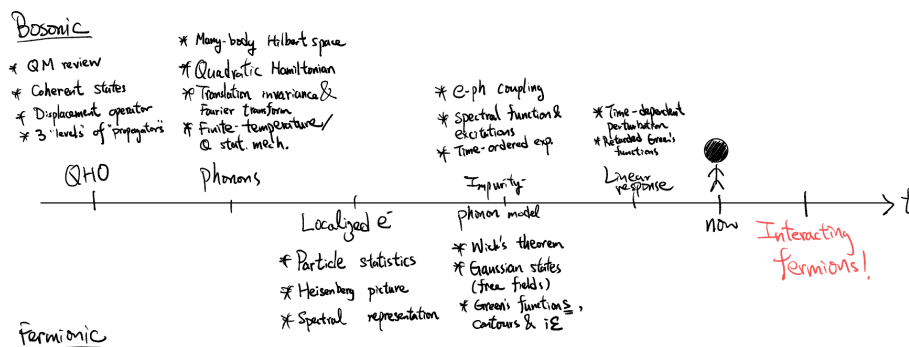 Bosonic
* QM review
* Coherent states
* Displacement operator
* 3 "levels" of "propagators"
QHO
* Many-body Hilbert space
* Quadratic Hamiltonian
* Translation invariance &
Fourier transform
* Finite-temperature/
Q stat. mech.
Phonons
Localized e⁻
* Particle statistics
* Heisenberg picture
* Spectral representation
* e-ph coupling
* Spectral function &
excitations
* Time-ordered exp.
Impurity-
phonon model
* Wick's theorem
* Gaussian states
(free fields)
* Green's functions,
contours & iε
* Time-dependent
perturbation
* Retarded Green's
functions
Linear
response
now
Interacting
fermions!
t
Fermionic